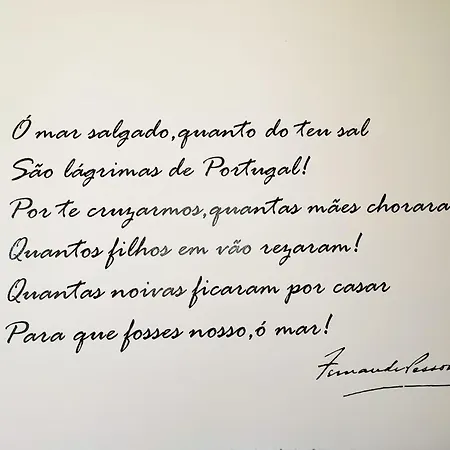 Ó mar salgado, quanto do teu sal
São lágrimas de Portugal!
Por te cruzarmos, quantas mães chorara
Quantos filhos em vão rezaram!
Quantas noivas ficaram por casar
Para que fosses nosso, ó mar!
Fernando Pessoa